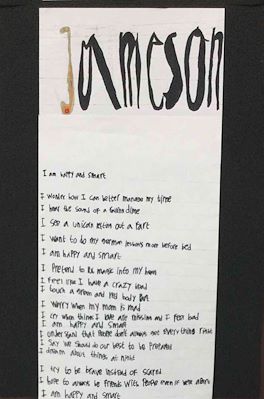 Jameson
I am happy and smart
I wonder how I can better manage my time
I hear the sound of a
I see a unicorn out a
I want to do my lessons more before bed
I am happy and smart
I Pretend to magic into my
I feel like I have a crazy
I touch a and my body
I worry when my mom is mad
I cry when things I love are missing and I feel bad
I am happy and smart
I understand that people don't always get everything right
I Say we should do our best to be prepared
I dream about things at night
I try to be brave instead of scared
I hope to always be friends with people even if we're
I am happy and smart